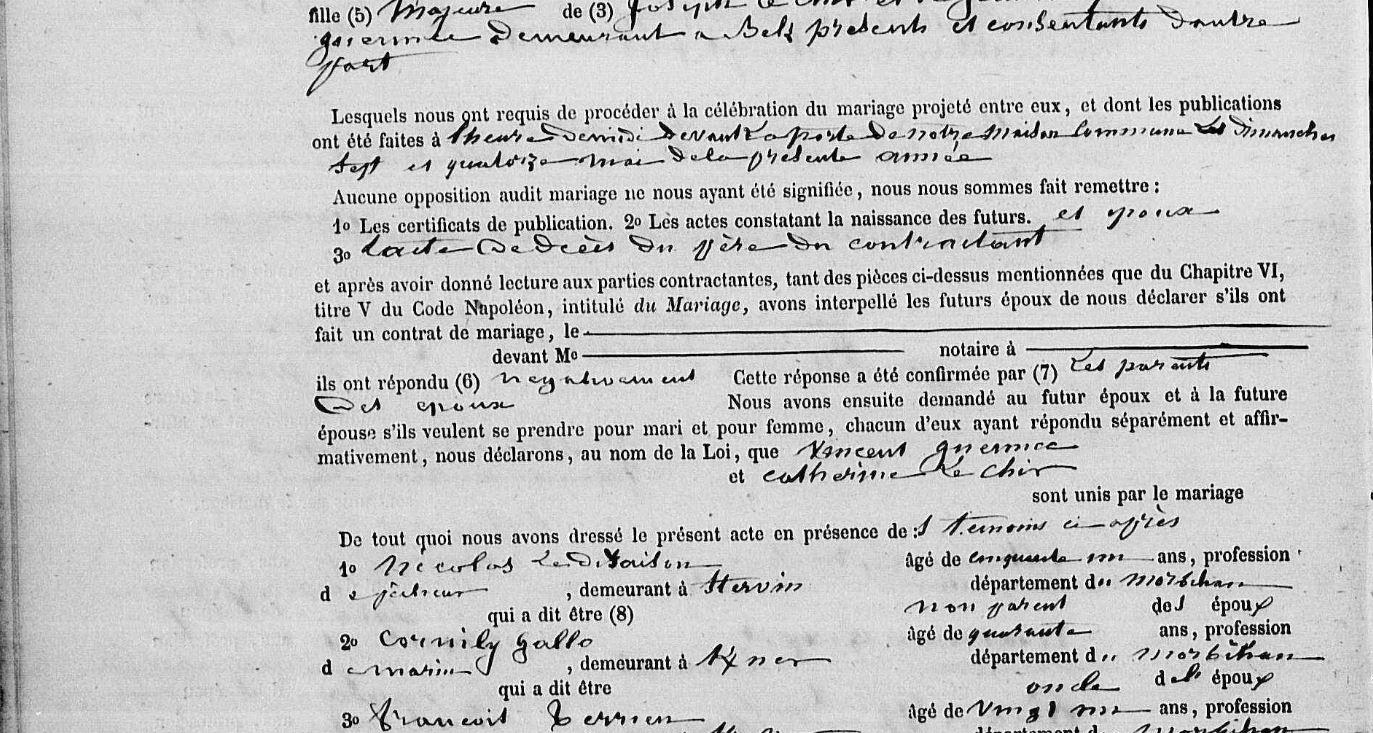 fille (5) Majeure de (3) Joseph Le
demeurant a Belz presents et consentants d'autre
part
Lesquels nous ont requis de procéder à la célébration du mariage projeté entre eux, et dont les publications
ont été faites à l'heure de midi devant la porte de notre maison commune les dimanches
sept et quatorze mai de la présente année
Aucune opposition audit mariage ne nous ayant été signifiée, nous nous sommes fait remettre :
1o Les certificats de publication. 2o Les actes constatant la naissance des futurs. et epoux
3o L'acte de décès du père du contractant
et après avoir donné lecture aux parties contractantes, tant des pièces ci-dessus mentionnées que du Chapitre VI,
titre V du Code Napoléon, intitulé du Mariage, avons interpellé les futurs époux de nous déclarer s'ils ont
fait un contrat de mariage, le
devant Me notaire à
ils ont répondu (6) negativement Cette réponse a été confirmée par (7) Les parents
Des epoux Nous avons ensuite demandé au futur époux et à la future
épouse s'ils veulent se prendre pour mari et pour femme, chacun d'eux ayant répondu séparément et affir-
mativement, nous déclarons, au nom de la Loi, que Vincent
et catherine Le
sont unis par le mariage
De tout quoi nous avons dressé le présent acte en présence de: temoins ci-après
1o Nicolas âgé de cinquante un ans, profession
d e pêcheur, demeurant à département du morbihan
qui a dit être (8) non parent des époux
2o Cornily gallo âgé de quarante ans, profession
d e marin, demeurant à département du morbihan
qui a dit être oncle de l' époux
3o francois Terrien âgé de Vingt un ans, profession
département d morbihan